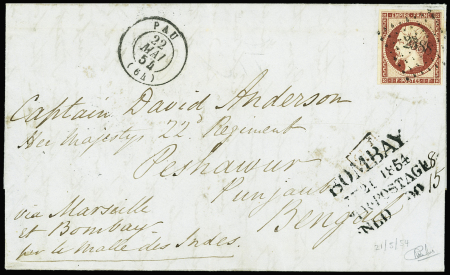 PAU
22
MAI
54
(64)
EMPIRE FRANC
Captain David Anderson
Her Majestys 22d Regiment
Peshawur
Punjaub
Bengal
via Marseille
et Bombay
par la Malle des Indes.
BOMBAY
21 1854
POSTAGE
15
21/5/54